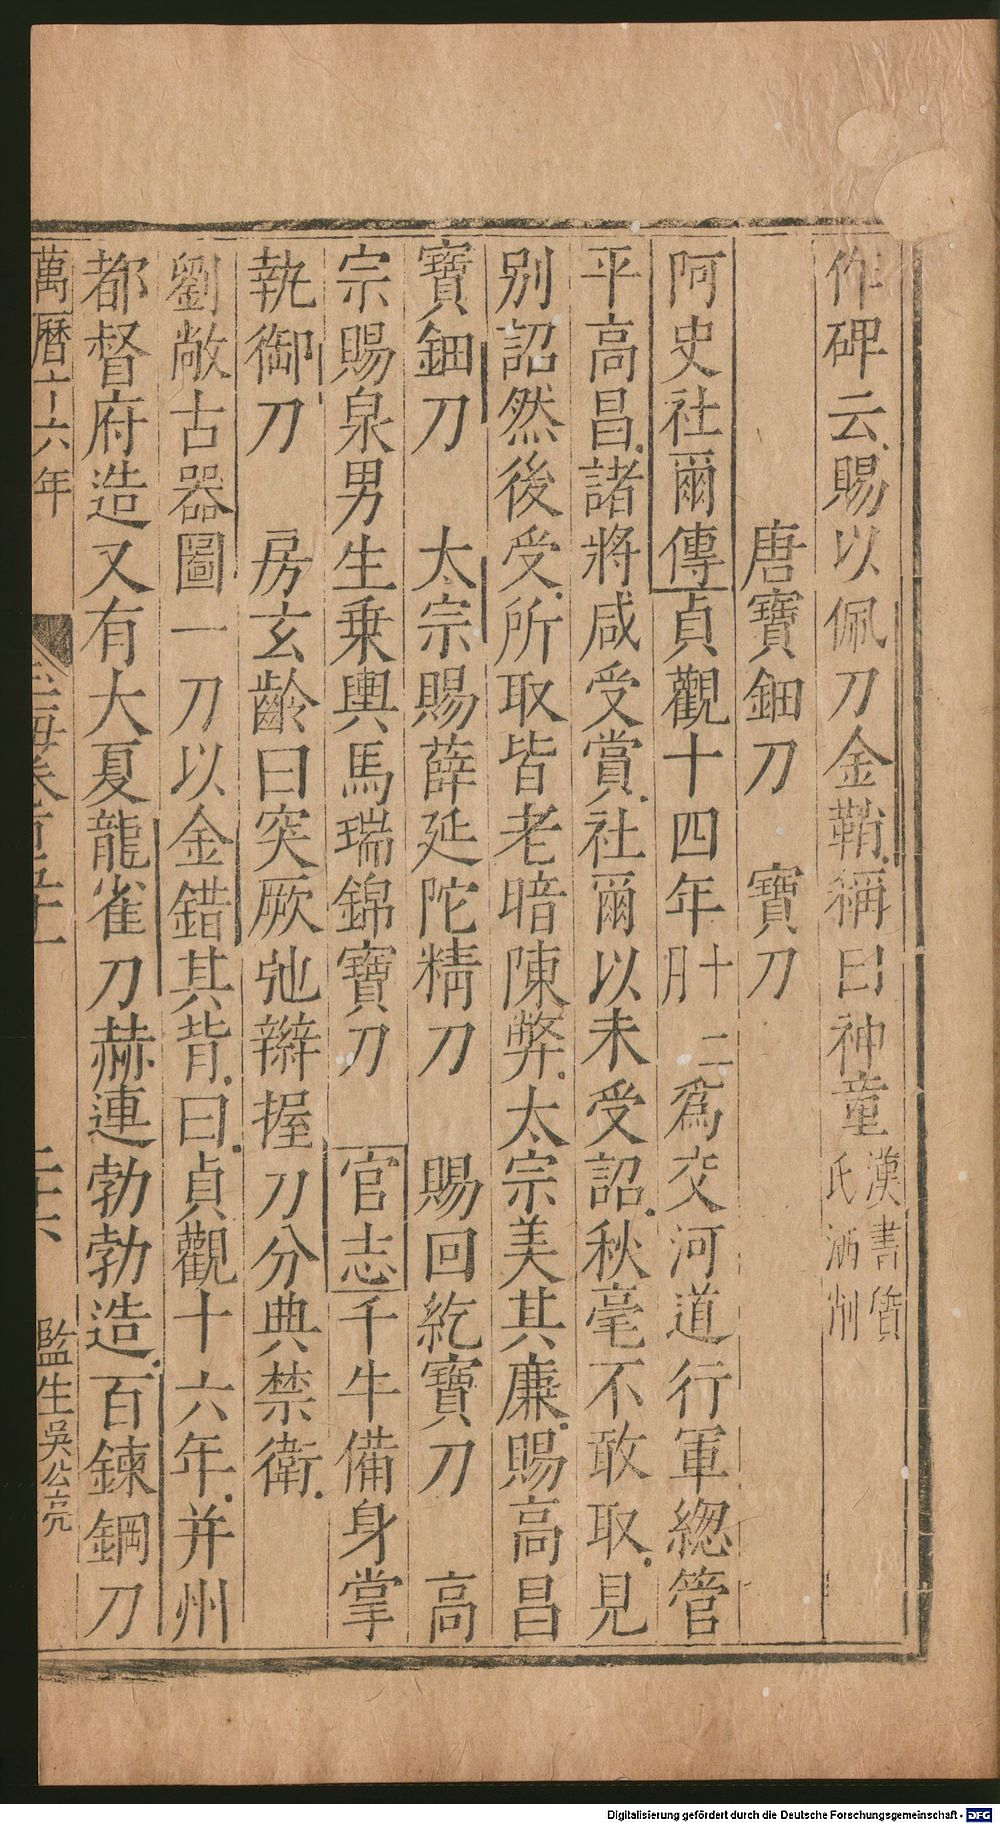 作碑云賜以佩刀金鞘稱曰神童漢書質氏洒削
唐寶鈿刀　寶刀
阿史社爾傳貞觀十四年十二月爲交河道行軍總管
平高昌諸將咸受賞社爾以未受詔秋毫不敢取見
别詔然後受所取皆老暗陳弊太宗美其廉賜高昌
寶鈿刀　太宗賜薛延陀精刀　賜回紇寶刀　高
宗賜泉男生乗輿馬瑞錦寶刀　官志千牛備身掌
執御刀　房玄齡曰突厥弛辮握刀分典禁衛
劉敞古器圖一刀以金錯其背曰貞觀十六年并州
都督府造又有大夏龍雀刀赫連勃勃造百鍊鋼刀
萬曆十六年
玉海卷百五十一
二十六
監生吳公亮
Digitalisierung gefördert durch die Deutsche Forschungsgemeinschaft - DFG